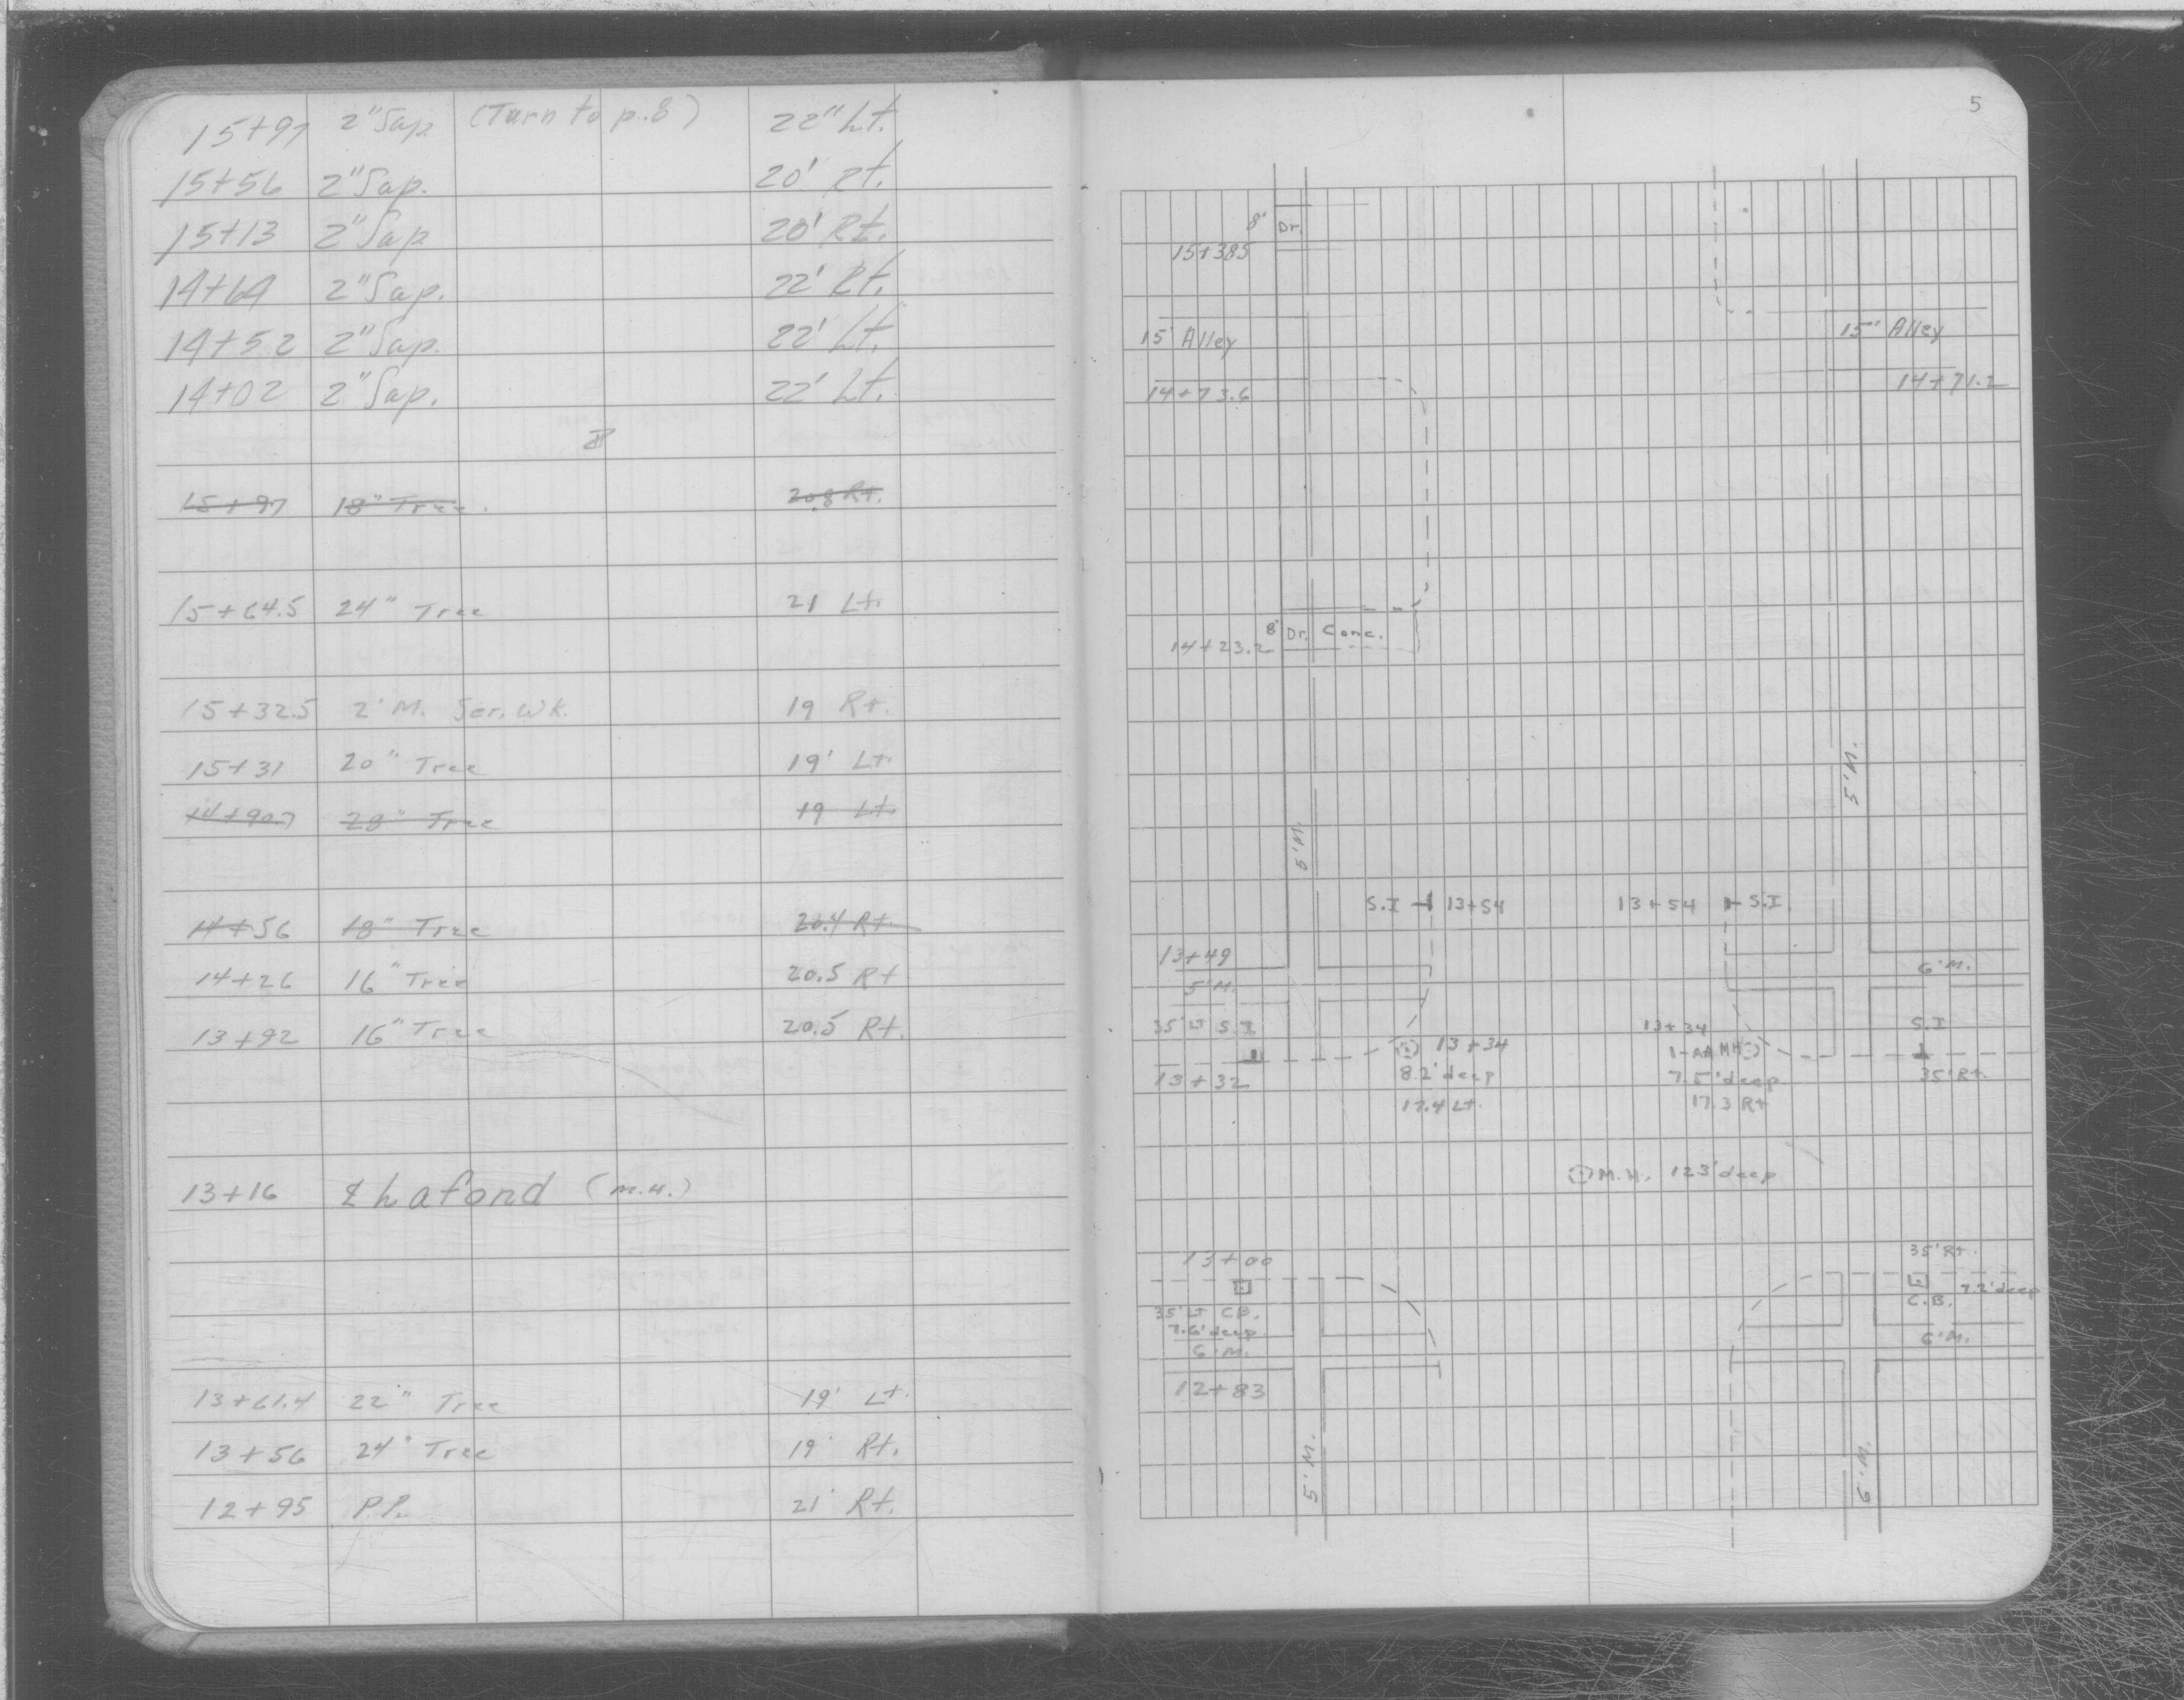 15+97 2" Sap. (Turn to p.8) 22" Lt.
15+56 2" Sap. 20' Rt.
15+13 2" Sap 20' Rt.
14+64 2" Sap. 22' Rt.
14+52 2" Sap. 22' Lt.
14+02 2" Sap. 22' Lt.
15+97 18" Tree. 20.8 Rt.
15+64.5 24" Tree 21 Lt.
15+32.5 2' M. Ser. Wk. 19 Rt.
15+31 20" Tree 19' Lt.
14+90.7 28" Tree 19 Lt.
14+56 18" Tree 20.4 Rt.
14+26 16" Tree 20.5 Rt
13+92 16" Tree 20.5 Rt.
13+16 Lafond (M.H.)
13+61.4 22" Tree 19' Lt.
13+56 24" Tree 19' Rt.
12+95 P.P. 21' Rt.
5
8' Dr.
15+385
15' Alley
15' Alley
14+73.6
14+71.2
8' Dr. Conc.
14+23.2
5'M.
5'M.
S.I 13+54
13+54 S.I.
13+49
5'M.
6'M.
35' Lt S.I.
13+32
13+34
8.2' deep
17.4 Lt.
13+34
1-AA MH
7.5' deep
17.3 Rt
S.I
35' Rt.
M.H. 12.3' deep
13+00
35' Lt C.B.
7.6' deep
6'M.
12+83
35' Rt.
C.B. 7.2' deep
6'M.
5'M.
6'M.